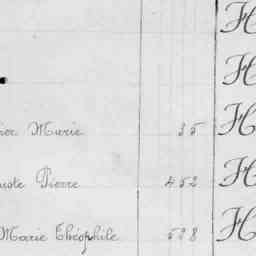 H
H
Marie 35 H
Pierre 452 H
Marie Théophile 528 H